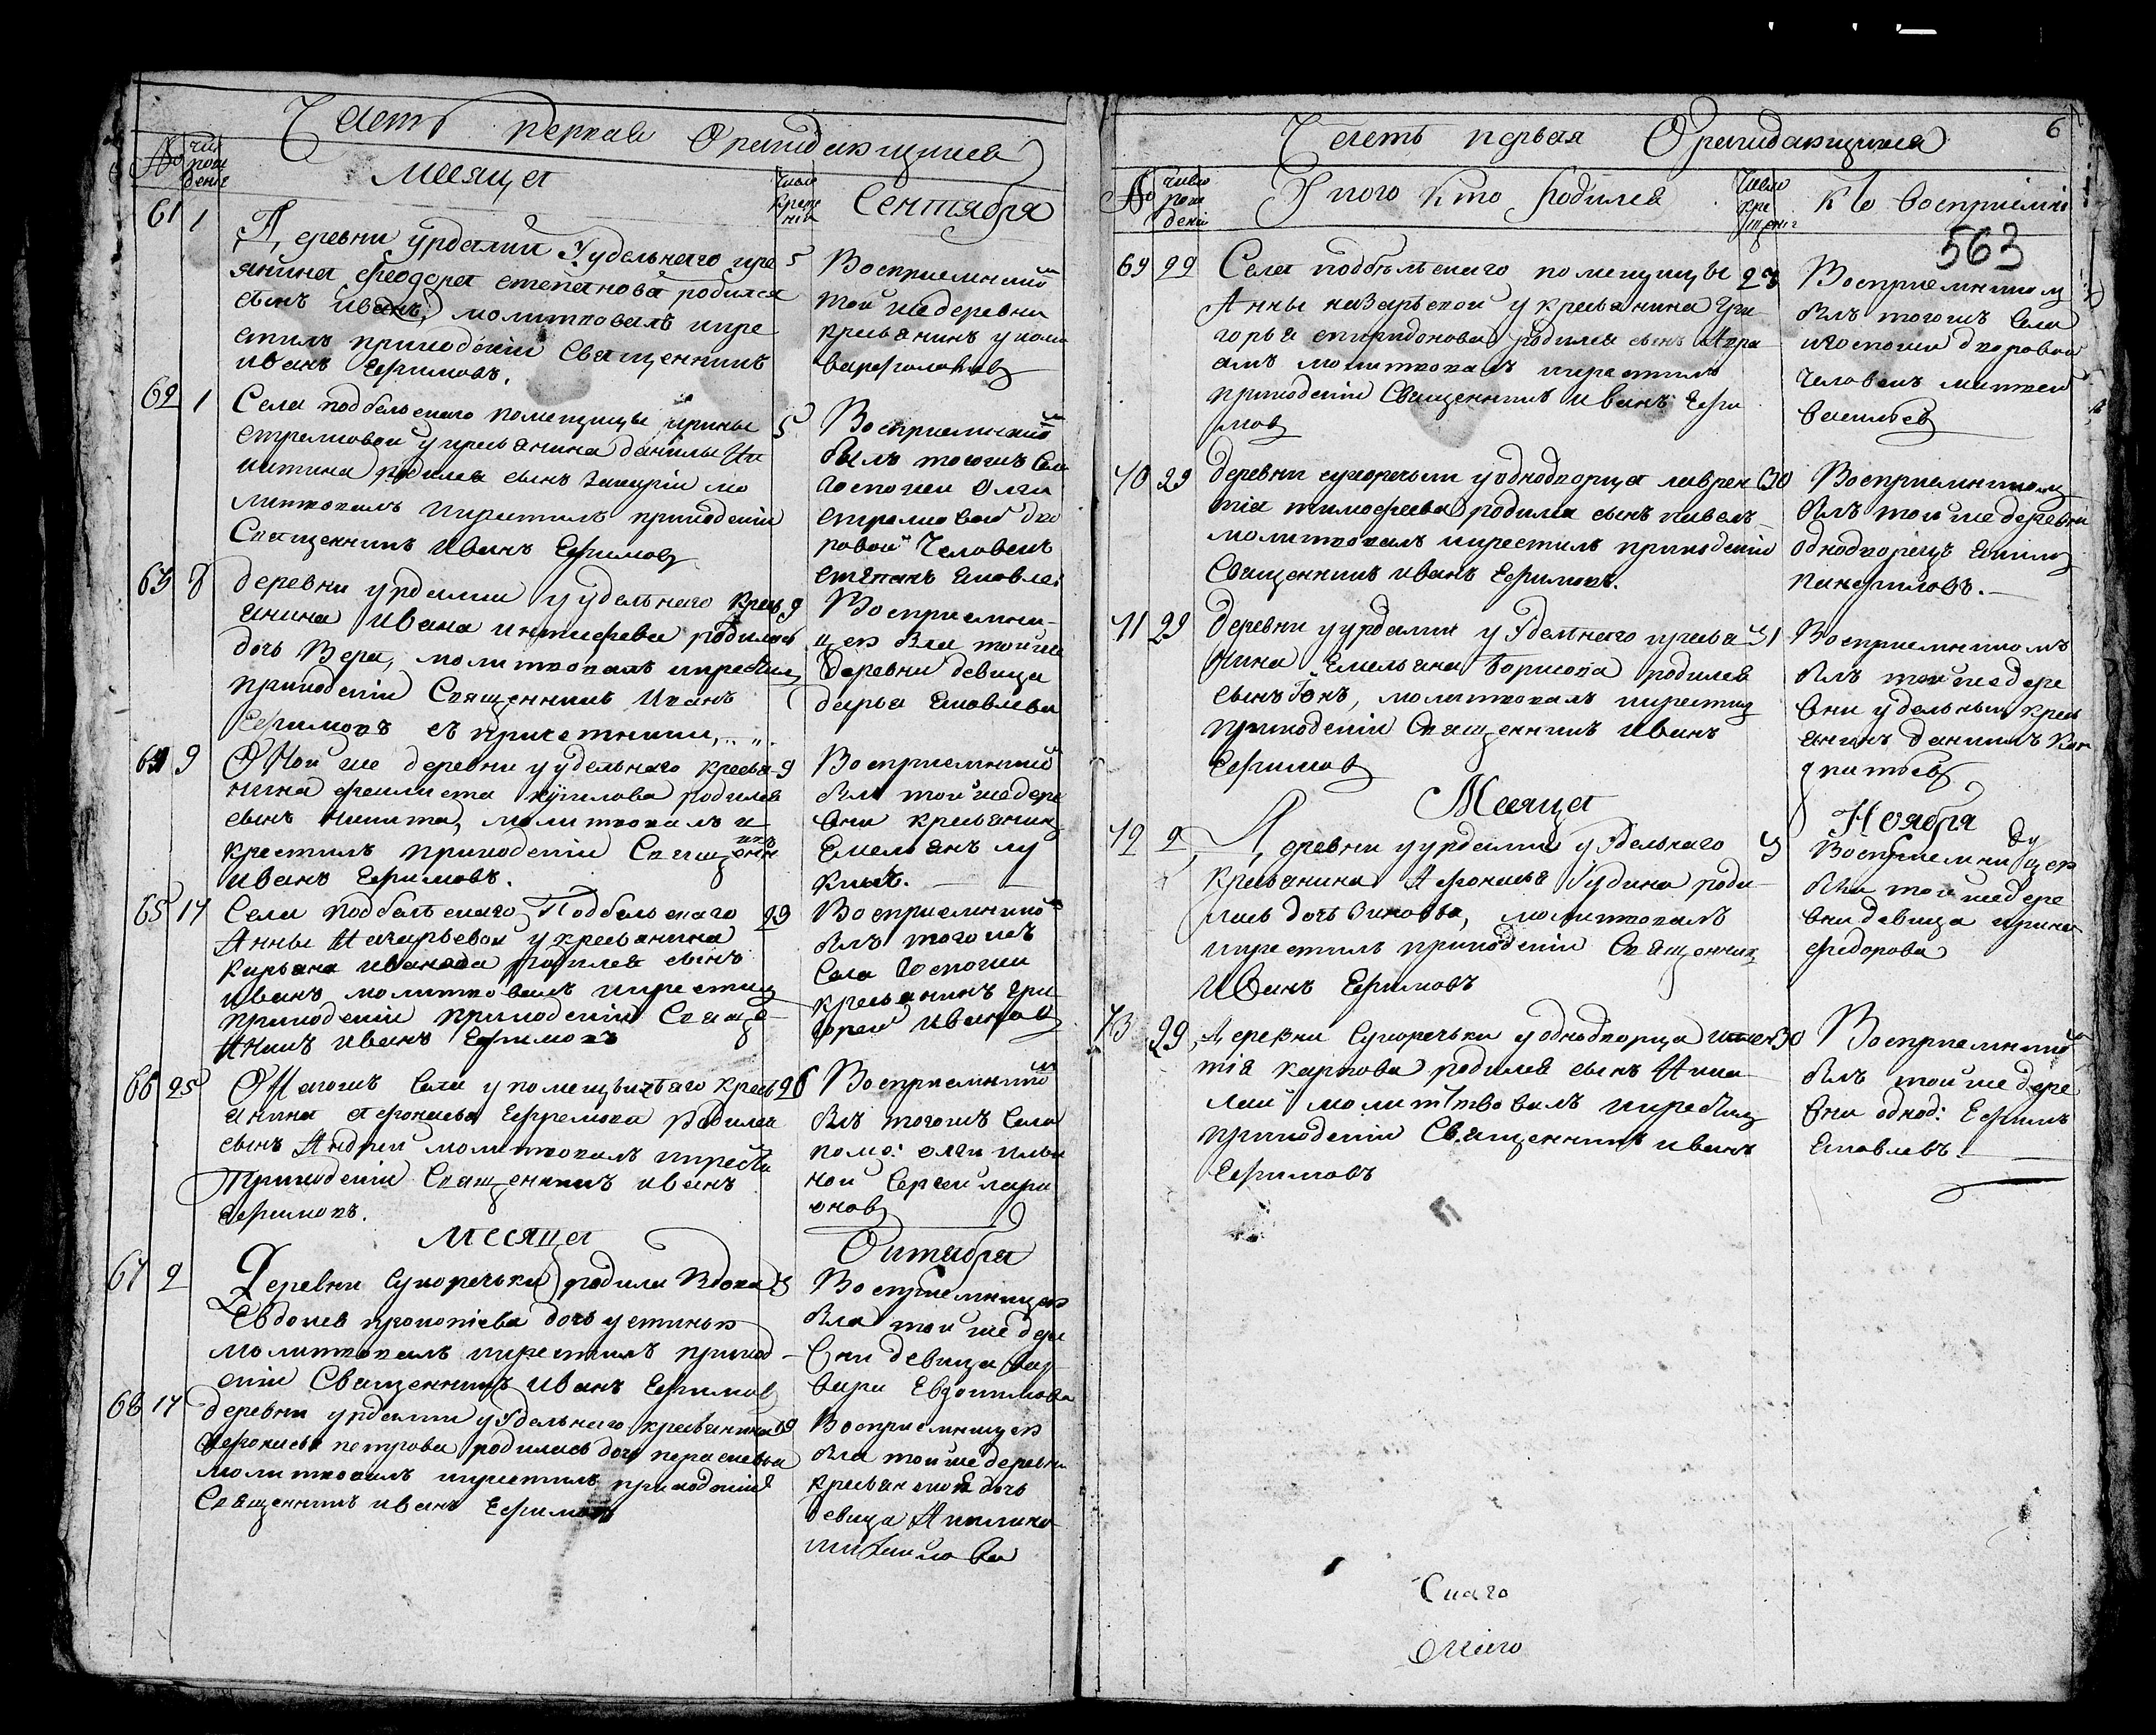 Часть первая О раждающихся
№
число рождения
Месяца
число крещения
Сентября
61 1
Деревни урдалии Удельнаго кре
янина Феодора степанова родился
сынъ иванъ, молитвовалъ икре
стилъ приходскіи Священникъ
иванъ Ефимовъ.
5
Восприемникомъ
той же деревни
крестьянинъ
варфоломеев
62 1
Села подбельскаго помещицы ирины
стрелковой у крестьянина данилы Ни
китина родился сынъ захаріи мо
литвовалъ икрестилъ приходскіи
Священникъ Иванъ Ефимовъ
5
Восприемникомъ
былъ тогожъ Села
госпожи Олги
стрелковой дво
ровой Человекъ
степанъ яковлев
63 8
деревни урдалии у удельнаго крест
янина Ивана интифева родилась
дочь Вера, молитвовалъ икрестил
приходскіи Священникъ Иванъ
Ефимовъ съ причетники
9
Восприемни-
цею была тойже
Деревни девица
дарья Яковлева
64 9
Той же деревни у удельнаго крестья-
нина феклиста родился
сынъ никита, молитвовалъ и
крестилъ приходскіи Священникъ
иванъ Ефимовъ.
9
Восприемникомъ
былъ той же дере
вни крестьянинъ
Емельянъ лу
кинъ.
65 17
Села подбельскаго Подбельскаго
Анны Назарьевой у крестьянина
Кирьяна иванова родился сынъ
иванъ молитвовалъ икрестил
приходскіи приходскіи Свяще-
нникъ иванъ Ефимовъ
29
Восприемникомъ
былъ тогожъ
Села Госпожи
крестьянинъ гри
горей Ивановъ
66 25
Тогожъ Села у помещичьяго крест
янина афонасья Ефремова Родился
сынъ Андреи молитвовалъ икрести
приходскіи Священникъ иванъ
Ефимовъ.
26
Восприемникомъ
былъ тогожъ Села
поме: олги ильи
ной Сергеи лари
оновъ
Месяца
Октября
67 2
Деревни Сухоречьки родила Вдова
Евдокея прокопіева дочь устинью
молитвовалъ икрестилъ приход-
скіи Священникъ Иванъ Ефимов
3
Восприемницею
была той же дере
вни девица вар
вара Евдокимова
68 17
деревни урдалии у Удельнаго крестьянина
Афонасья петрова родилась дочь параскевья
молитвовалъ икрестилъ приходскіи
Священникъ иванъ Ефимовъ
19
Восприемницею
была той же деревни
крестьянской дочь
девица Акилина
михаилова
Часть первая О раждающихся
6
№
число рождения
У кого кто родился
Число крещения
Кто восприемни
563
69 22
Села подбѣльскаго помещицы
Анны назарьевой у крестьянина Гри
горья спиридонова родился сынъ Авра
амъ молитвовалъ икрестилъ
приходскіи Священникъ Иванъ Ефи
мов
23
Восприемником
былъ тогожъ Села
иГоспожи дворовои
Человекъ матвеи
Васильев
70 29
деревни сухоречьки у однодворца лаврен
тія тимофеева родился сынъ павелъ
молитвовалъ икрестилъ приходскіи
Священникъ иванъ Ефимовъ.
30
Восприемником
былъ той же деревни
однодворецъ
панфиловъ.
71 29
Деревни у урдалии у Уделнаго крестья
нина Емельяна Борисова родился
сынъ, молитвовалъ икрестил
приходскіи Священникъ Иванъ
Ефимов
31
Восприемникомъ
былъ той же дере
вни удельныи крест
янинъ данилъ Кон
дратьев
Месяца
Ноября
72 2
Деревни у урдалии у Удельнаго
Крестьянина Афонасья Гудина роди
лась дочь Зиновья, молитвовалъ
икрестилъ приходскіи Священник
Иванъ Ефимовъ
3
Восприемницею
была той же дере
вни девица ирина
федорова
73 29
Деревни Сухоречьки у однодворца игнат
тія карпова родился сынъ Нико
лаи молитвовалъ икрестил
приходскіи Священникъ иванъ
Ефимовъ
30
Восприемникомъ
былъ той же дере
вни однод: Ефимъ
Яковлевъ.